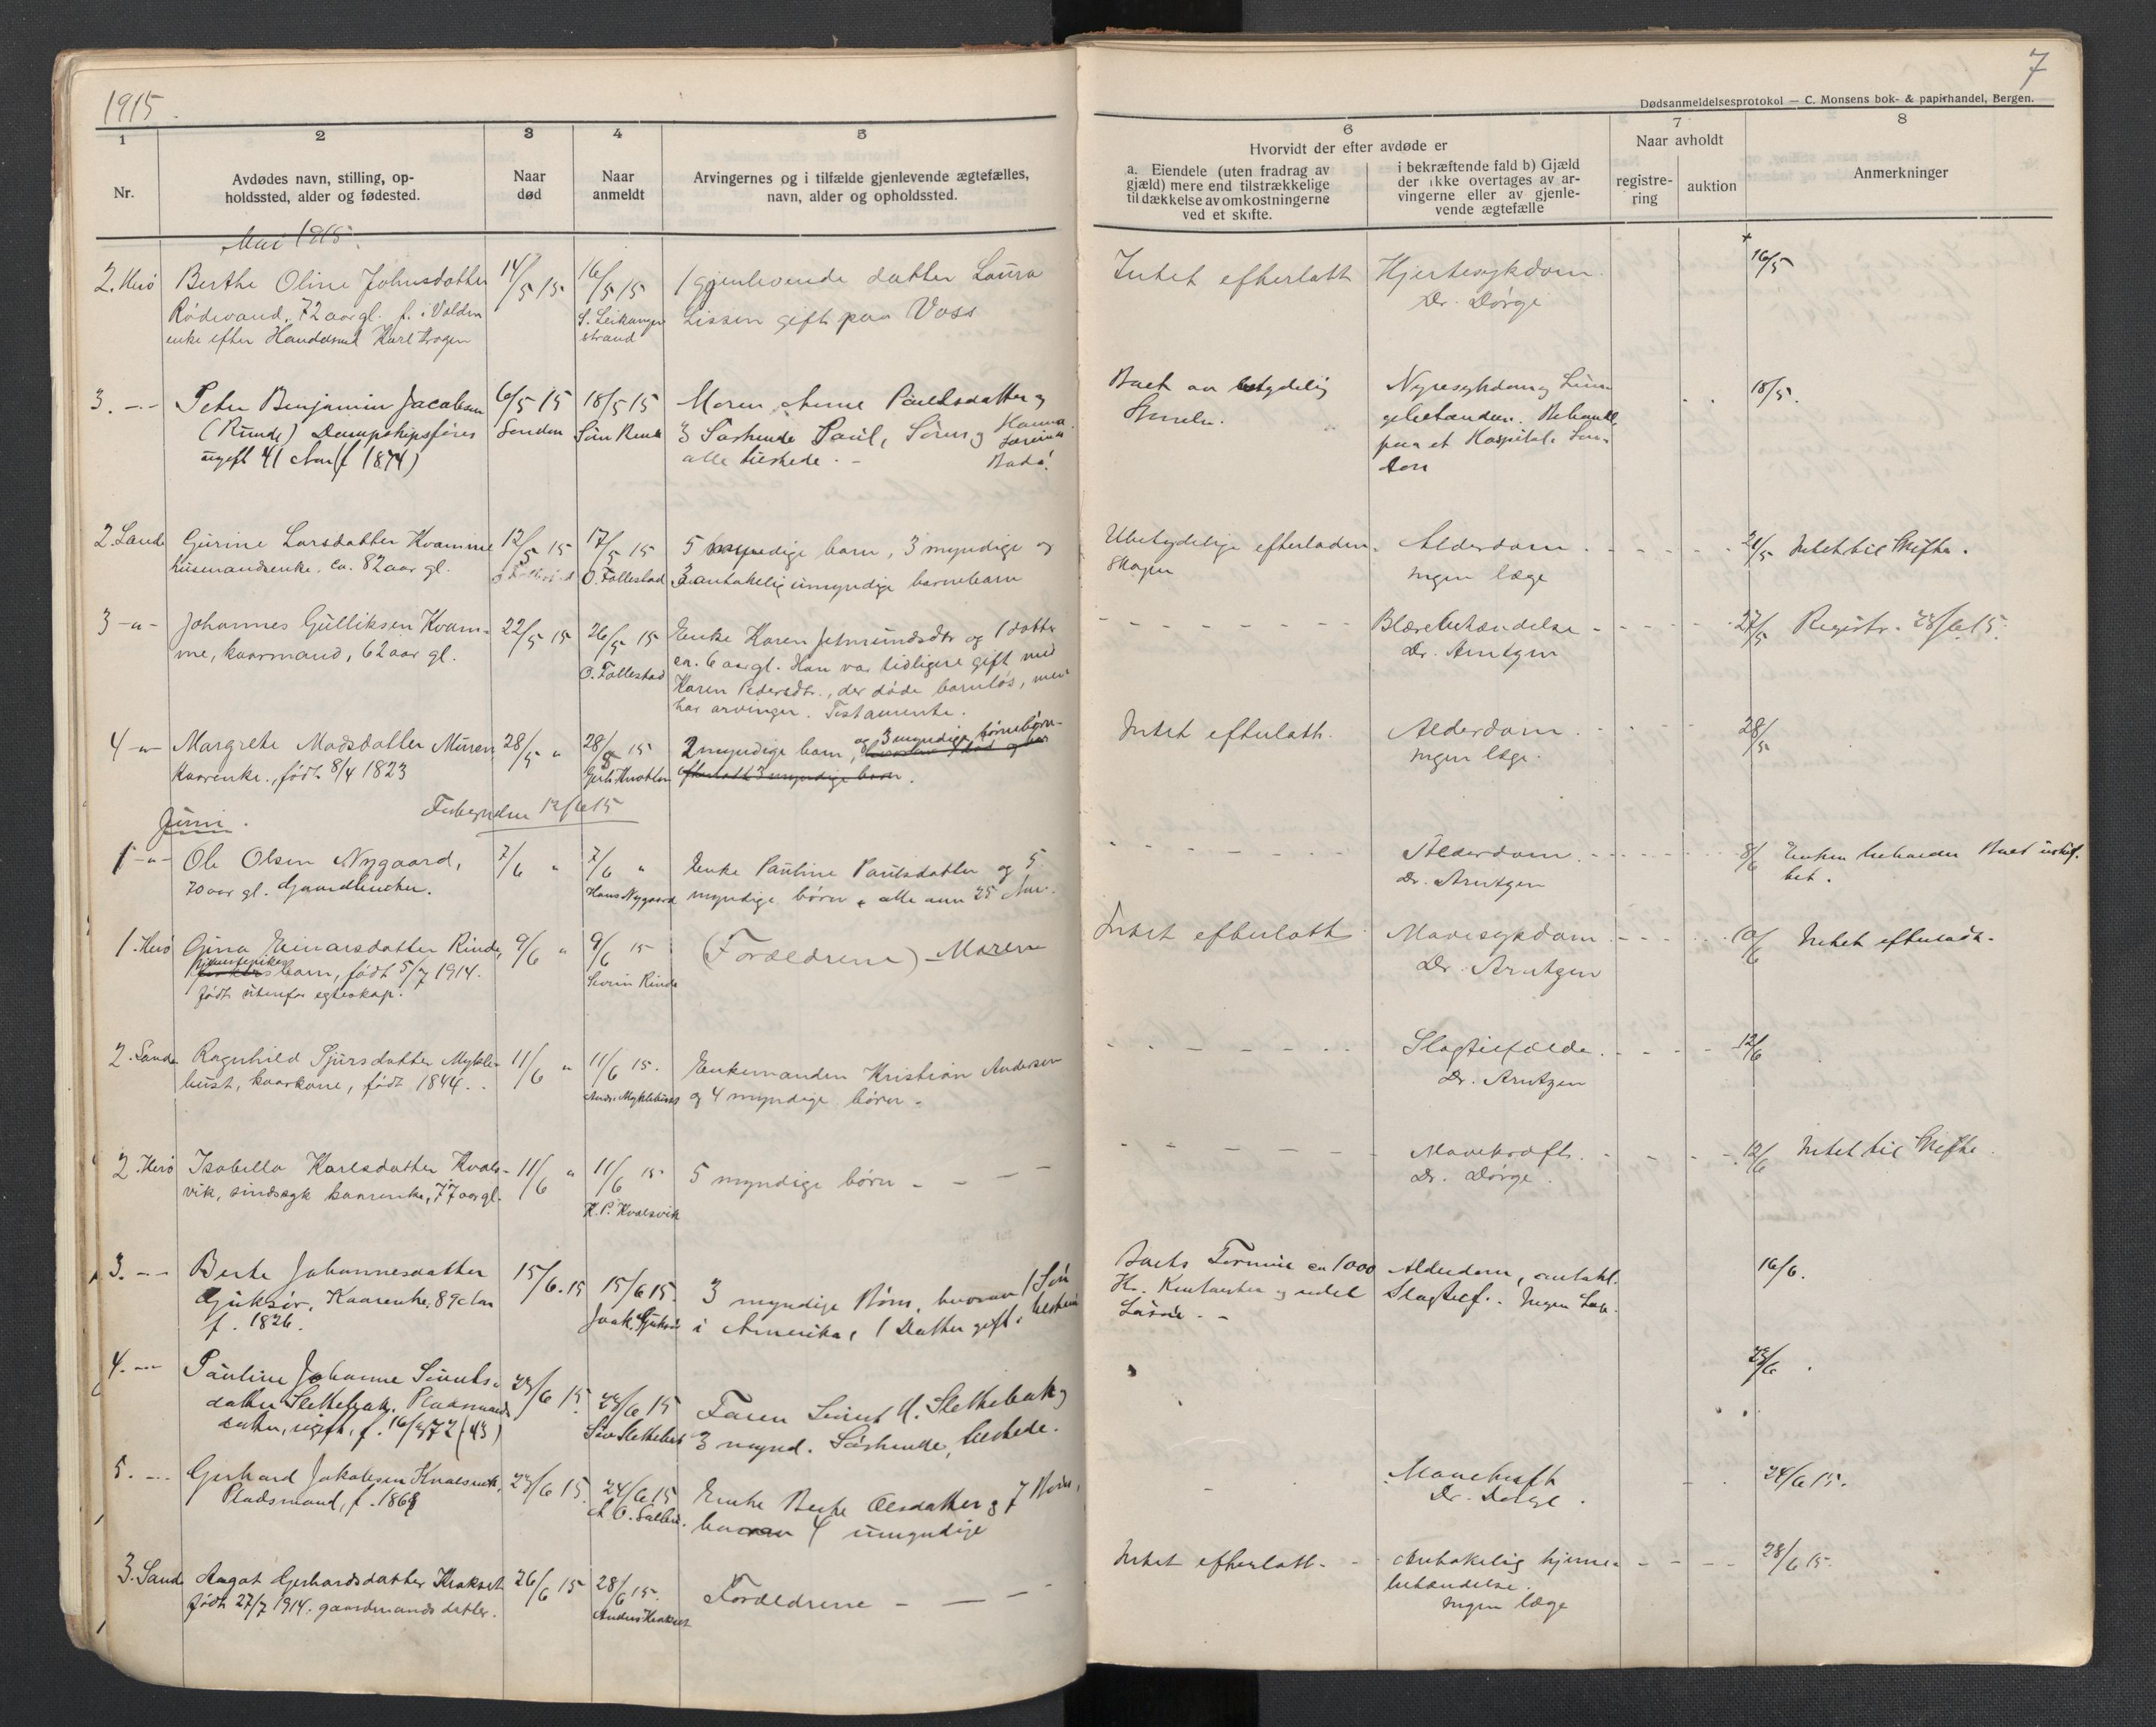 1915.
7
Dødsanmeldelsesprotokol — C. Monsens bok- & papirhandel, Bergen.
1 2 3 4 5 6 7 8
Nr.
Avdødes navn, stilling, op-
holdssted, alder og fødested.
Naar
død
Naar
anmeldt
Arvingernes og i tilfælde gjenlevende ægtefælles,
navn, alder og opholdssted.
Hvorvidt der efter avdøde er
a. Eiendele (uten fradrag av
gjæld) mere end tilstrækkelige
til dækkelse av omkostningerne
ved et skifte.
i bekræftende fald b) Gjæld
der ikke overtages av ar-
vingerne eller av gjenle-
vende ægtefælle
Naar avholdt
registre-
ring
auktion
Anmerkninger
Mai 1915.
2. Herö
Berthe Oline Johnsdatter
Rödvand, 72 aar gl. f. i Volden
enke efter Karl
14/5 15
16/5 15
S. Leikanger
strand
1 gjenlevende datter Laura
gift paa Voss
Intet efterlatt
Hjertesykdom.
Dr. Dörge
16/5
3. -"-
Peter Benjamin Jacobsen
(Runde) Dampskipsförer
ugift 41 Aar (f 1874)
6/5 15
London
18/5 15
Moren Anne Paulsdatter og
3 Söskende Paul, Sören og Hanna
alle tilstede. -
Boet av ubetydelig
Nyresykdom og Lun-
gebetændelse.
paa et Hospital i Lon-
don
18/5.
2. Sande
Gurine Larsdatter Kvamme
husmandsenke. ca. 82 aar gl.
12/5 15
17/5 15
O. Follestad
5 myndige barn, 3 myndige og
3 antakelig umyndige barnebarn
Ubetydelige efterladen-
skaper
Alderdom.
Ingen læge
21/5 Intet til Skifte.
3 -"-
Johannes Gulliksen Kvam-
me, kaarmand, 62 aar gl.
22/5 15
26/5 15
O. Follestad
Enke Karen Jetmundsdtr og 1 datter
ca. 6 aar gl. Han var tidligere gift med
Karen Pedersdtr., der döde barnlös, men
har arvinger. Testamente.
Blærebetændelse
Dr. Arntzen
27/5 Registr. 28/6 15.
4 -"-
Margrete Madsdatter Muren,
Kaarenke, födt 8/4 1823
28/5 "
28/5 15
2 myndige barn, og 3 myndige börnebörn
efterlatt 3 myndige barn.
Intet efterlatt.
Alderdom.
Ingen læge.
28/5
Juni.
12/6 15
1 -"-
Ole Olsen Nygaard,
70 aar gl. Gaardbruker.
7/6 "
7/6 "
Hans Nygaard
Enke Pauline Paulsdatter og 5
myndige börn, alle over 25 Aar.
Alderdom.
Dr. Arntzen
8/6 Enken beholder Boet uskif-
tet.
1. Herö
Gina Einarsdatter Rinde,
barn, födt 5/7 1914.
födt utenfor egteskap.
9/6 "
9/6 15
Severin Rinde
(Forældrene) - Moren
Intet efterlatt.
Mavesykdom
Dr. Arntzen
10/6 Intet efterladt.
2. Sande
Ragnhild Sjursdatter Mykle-
bust, kaarkone, födt 1844.
11/6 "
11/6 15.
Andr. Myklebust
Enkemanden Kristian Andersen
og 4 myndige börn.
Slagtilfælde.
Dr. Arntzen
12/6
2. Herö
Isabella Karlsdatter Kvals-
vik, sindssyk kaarenke, 77 aar gl.
11/6 "
11/6 15
K. P. Kvalsvik
5 myndige börn - - -
Mavekræft.
Dr. Dörge.
12/6 Intet til Skifte.
3. -"-
Berte Johannesdatter
Gjuksör, Kaarenke, 89 Aar
f. 1826.
15/6.15
15/6 15.
3 myndige Börn, hvorav 1 Sön
i Amerika, 1 Datter gift.
Boets Formue ca 1000
Kr.
Alderdom, antakl.
Slagtilf. Ingen
16/6.
4. -"-
Pauline Johanne Sivertsdatter
Slettebak. Pladsmands-
datter, ugift, f. 16/ 72 (43)
23/6 15.
23/6 15
Siv Slettebak
Faren Sivert A. Slettebak og
3 mynd. Söskende, tilstede.
23/6.
5. -"-
Gerhard Jakobsen Kvalsvik,
Pladsmand, f. 1869
23/6 15.
24/6 15
Enke Berte Olsdatter og 7 Börn,
hvorav 4 umyndige
Mavekræft
Dr. Dörge.
24/6 15.
3. Sande
Aagot Gerhardsdatter Krakset
födt 27/7 1914. gaardmands datter.
26/6 15
28/6 15.
Anders Krakset
Forældrene - - -
Intet efterlatt.
Antakelig hjerne-
betændelse.
Ingen læge
28/6 15.